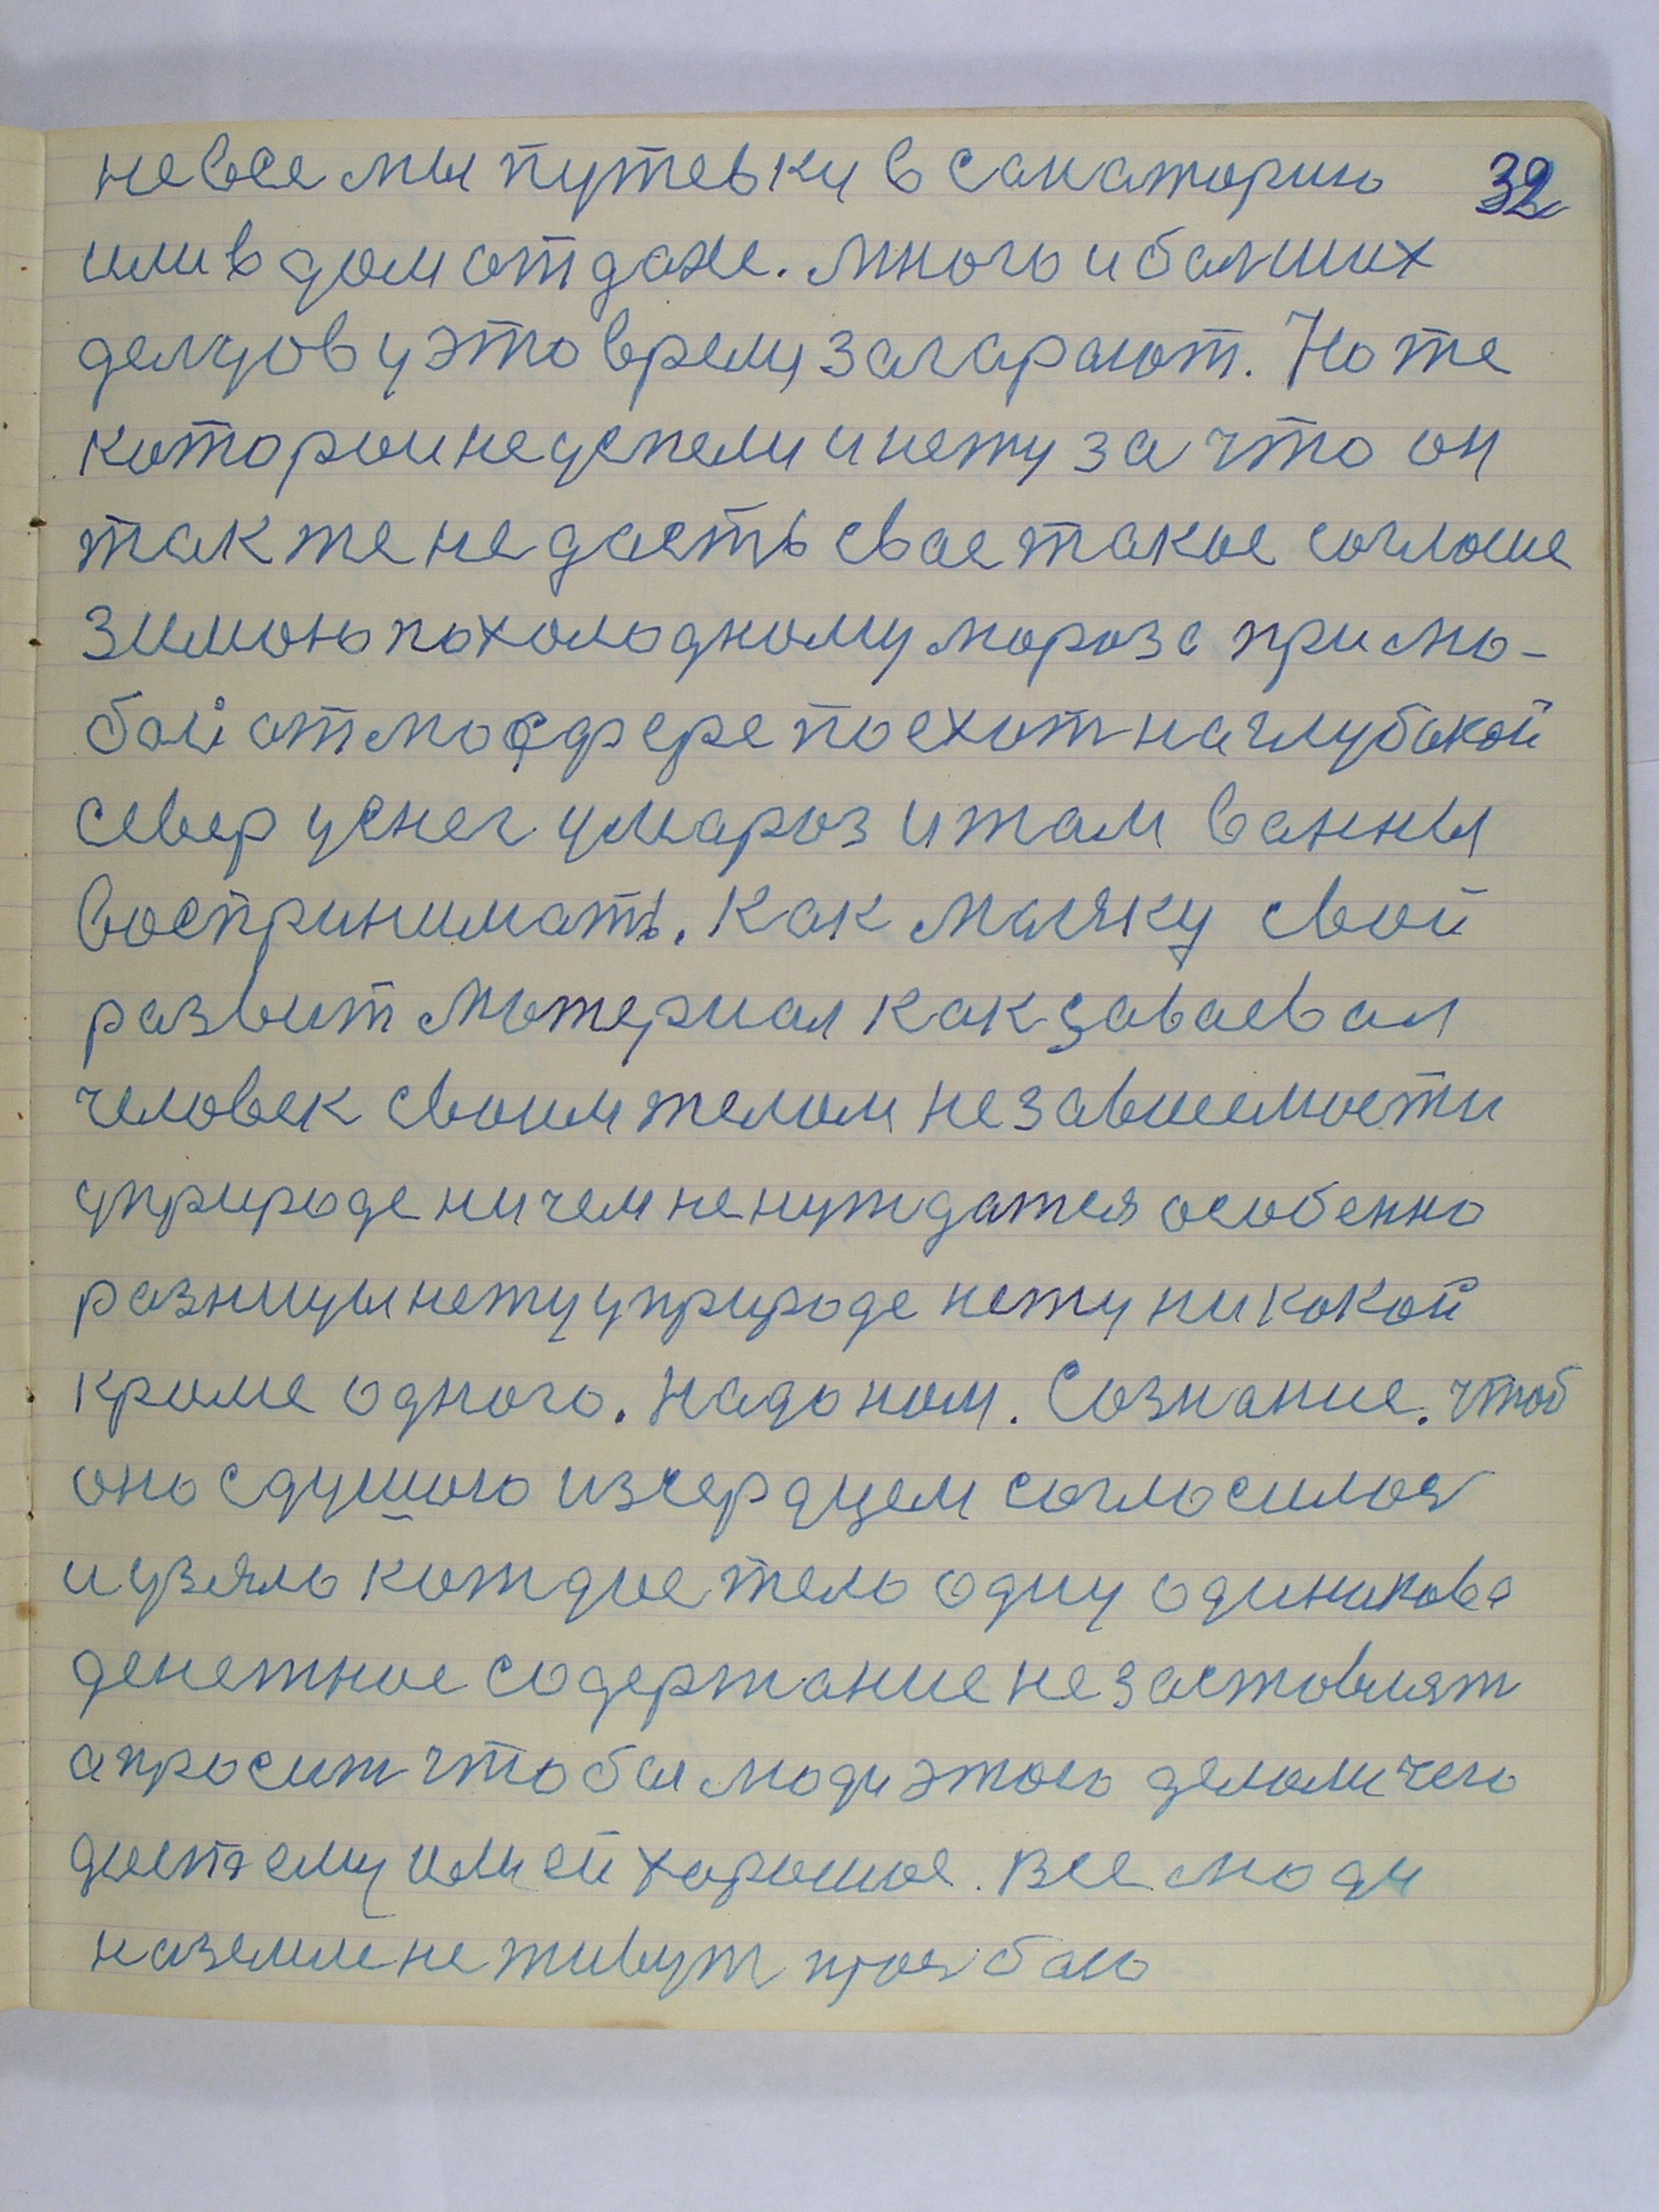 невсе мы путевку в санаторию 32
или в дом отдахе. Много и балших
делцов у это врему загарают. Но те
которыи не успели и нету за что он
так же не дасть свае такое соглаше
зимою по холодному мороза при лю-
бой атмосфере поехат на глубокой
север у снег у мароз и там ванны
воспринимать. Как маляку свой
развит Материал как заваевал
человек своим телом независемости
у природе ни чем не нуждатся особенно
разницы нету у природе нету никокой
кроме одного. Надо нам. Сознание. чтоб
оно с душою из сердцем согласилоя
и узяло каждое тело одну одинакова
денежное содержание не заставлят
а просит что бы люди этого делали чего
даст ему или ей хорошое. все люди
на земле не живут